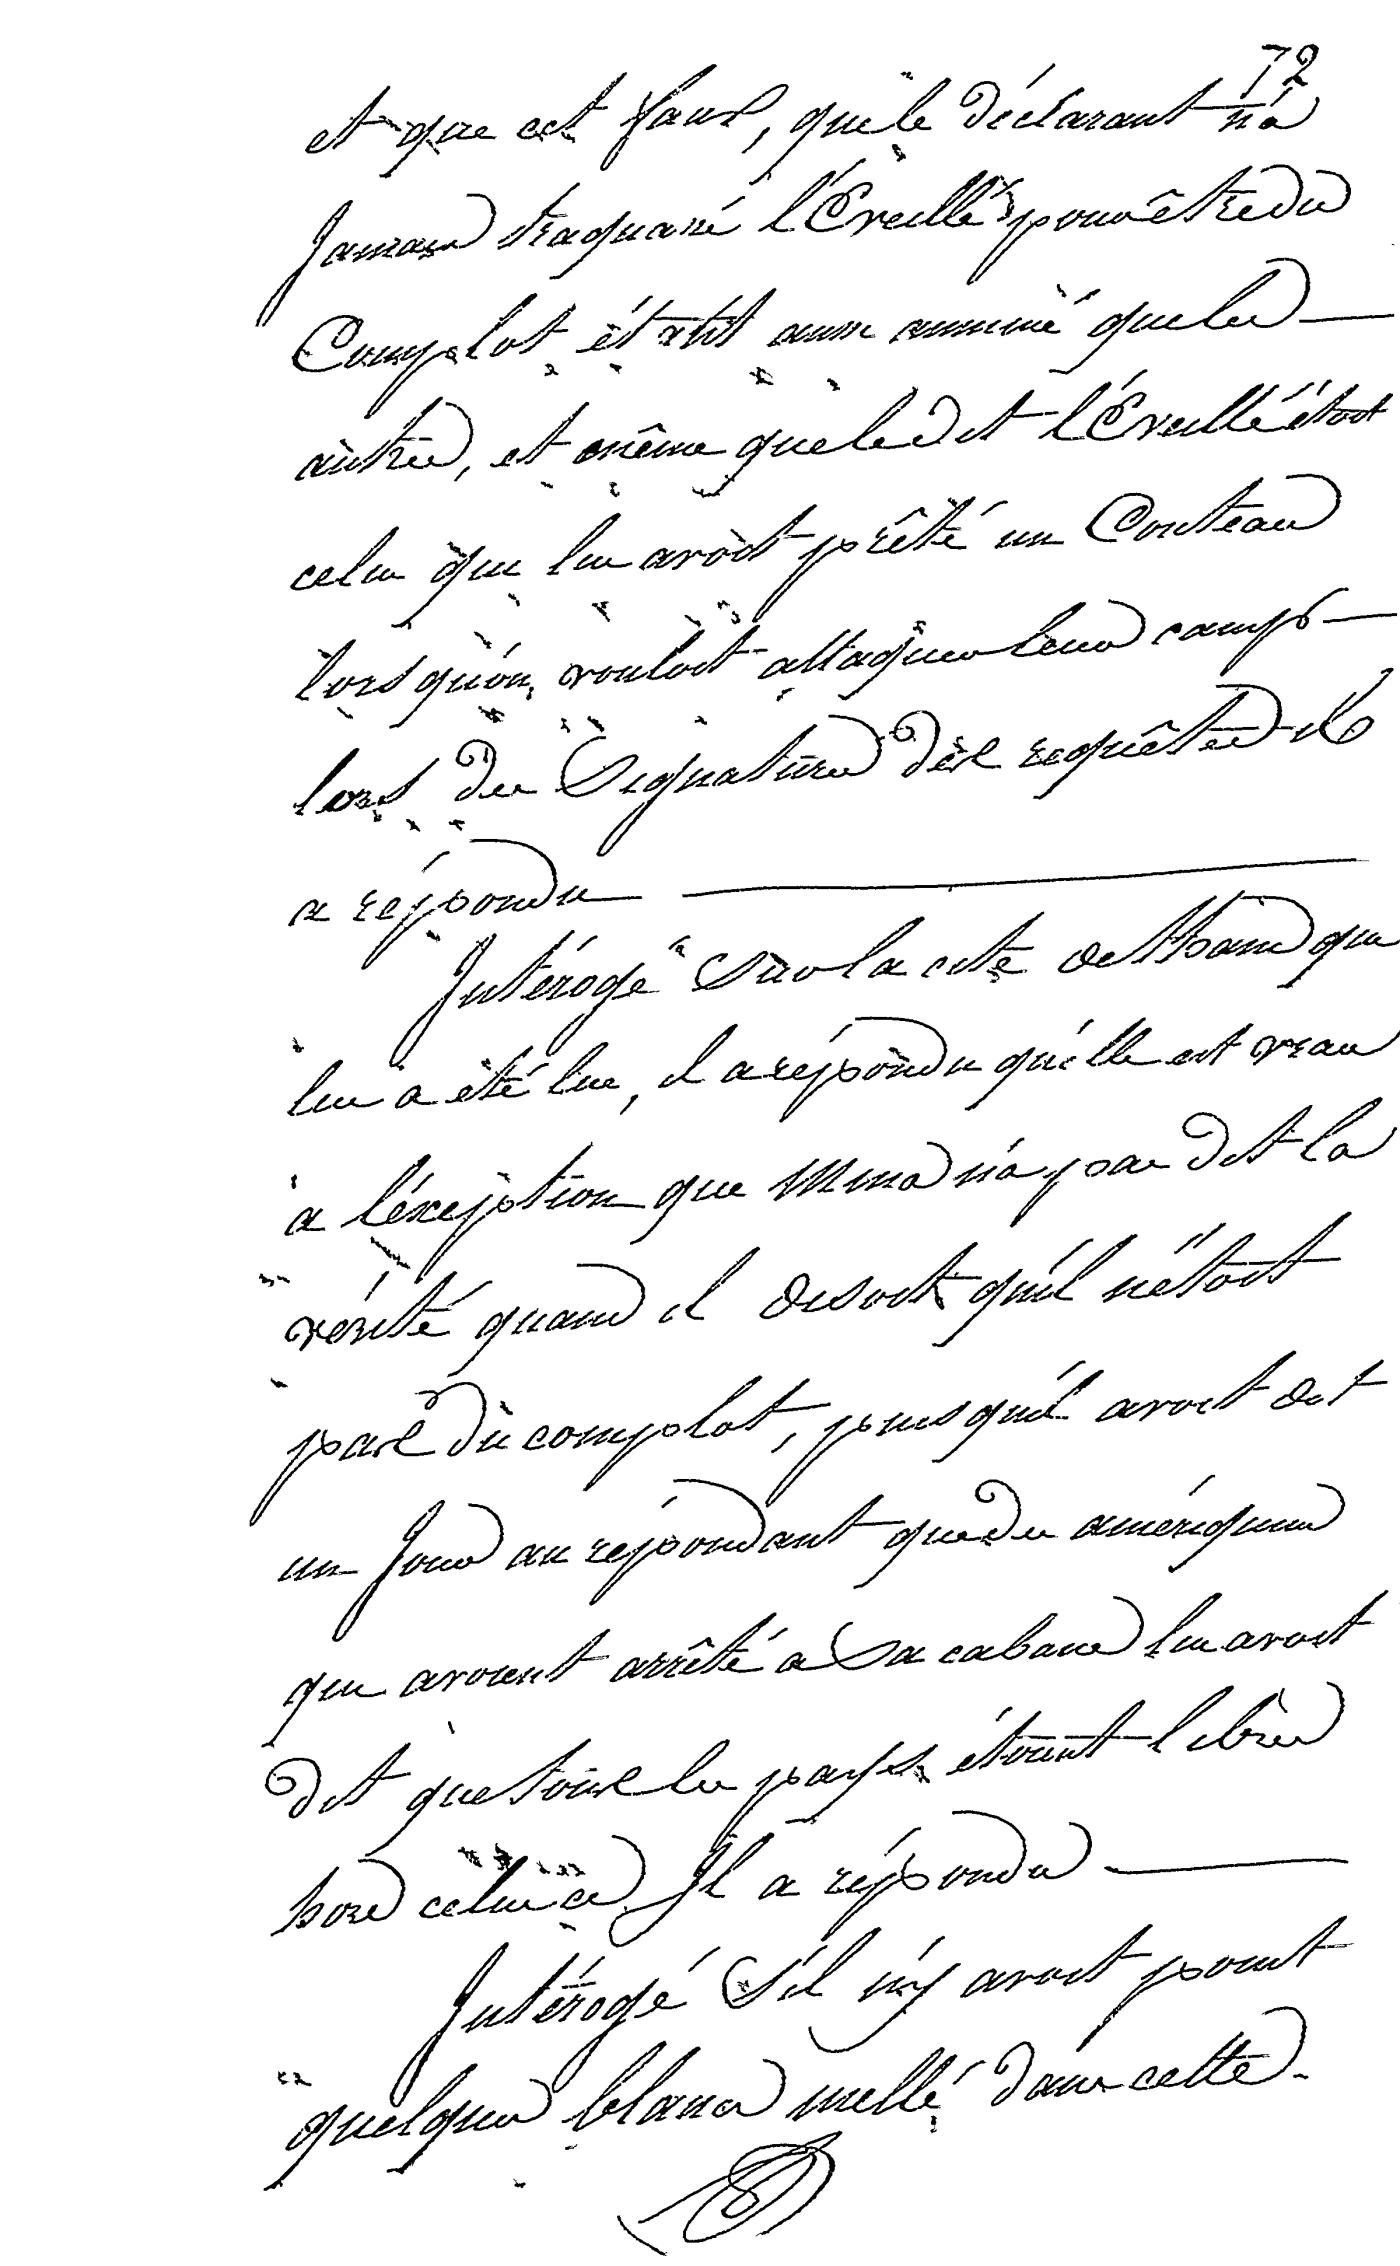 72
et que cet faux, que le déclarant n'a
Jamais traquaré l'Éveillé pour être du
Complot, étant aussi animé que les
autres, et même que le dit l'Éveillé étoit
celui qui lui avoit prêté un Couteau
lors qu'on vouloit attaquer leurs camps
lors des Signatures des requêtes il
a répondu
Intérogé Sur la cete de thani qui
lui a été lue, il a répondu qu'elle est vraie
a l'éxeption que Mina n'a pas dit la
vérité quand il disoit qu'il n'étoit
pas du complot, puisqu'il avoit dit
un Jour au répondant que des amériquins
qui avoient arrêté a Sa cabane lui avoit
dit que tous les pays étoient libres
hors celui ci Il a répondu
Intérogé S'il n'y avoit point
quelques blancs mellé dans cette